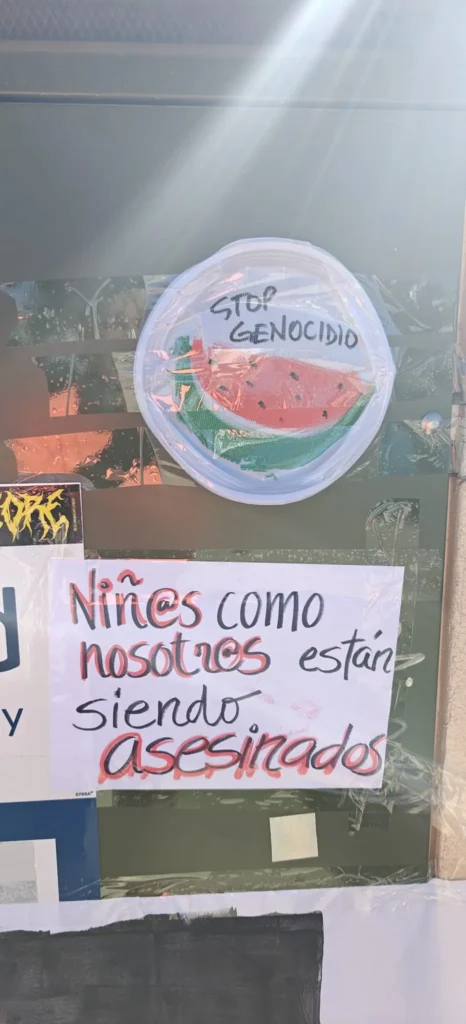 STOP
GENOCIDIO
ORE
y
Niñ@s como
nosotr@s están
siendo
asesinados